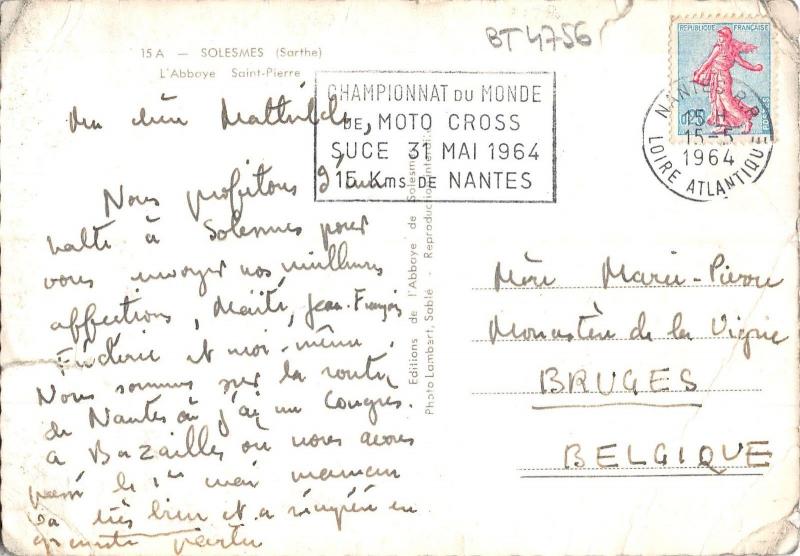 BT 4756
15 A — SOLESMES (Sarthe)
L'Abbaye Saint-Pierre
RÉPUBLIQUE FRANÇAISE
POSTES
CHAMPIONNAT DU MONDE
DE MOTO CROSS
SUCE 31 MAI 1964
15 Kms DE NANTES
NANTES R.P.
15 H
15-5
1964
LOIRE ATLANTIQUE
Ma chère Mathilde,
Nous profitons d'une
halte à Solesmes pour
vous envoyer nos meilleures
affections, Maïté, Jean-François
Frédéric et moi-même.
Nous sommes sur la route
de Nantes où j'ai un Congrès.
à Bazailles où nous avons
passé le 1er mai maman
va très bien et a récupéré en
grande partie
Editions de l'Abbaye de Solesmes
Photo Lambert, Sablé - Reproduction interdite
Mère Marie-Pierre
Monastère de la Vigne
BRUGES
BELGIQUE